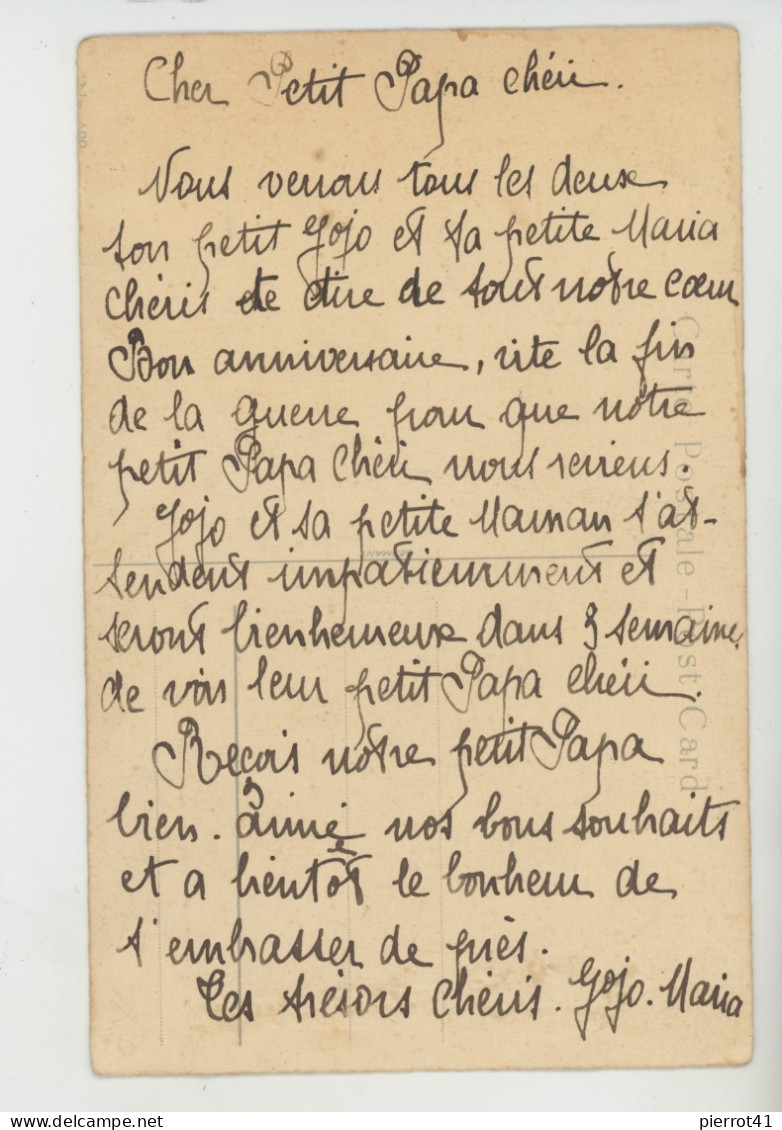 Cher Petit Papa chéri.
Nous venons tous les deux
ton petit Jojo et ta petite Maria
chéris te dire de tout notre cœur
Bon anniversaire, vite la fin
de la guerre pour que notre
petit Papa chéri nous reviens.
Jojo et sa petite Maman t'at-
tendent impatiemment et
seront bienheureux dans 3 semaine
de voir leur petit Papa chéri.
Reçois notre petit Papa
bien-aimé nos bons souhaits
et a bientôt le bonheur de
t'embrasser de près.
Tes trésors chéris. Jojo. Maria
Carte Postale - Post Card
pierrot41